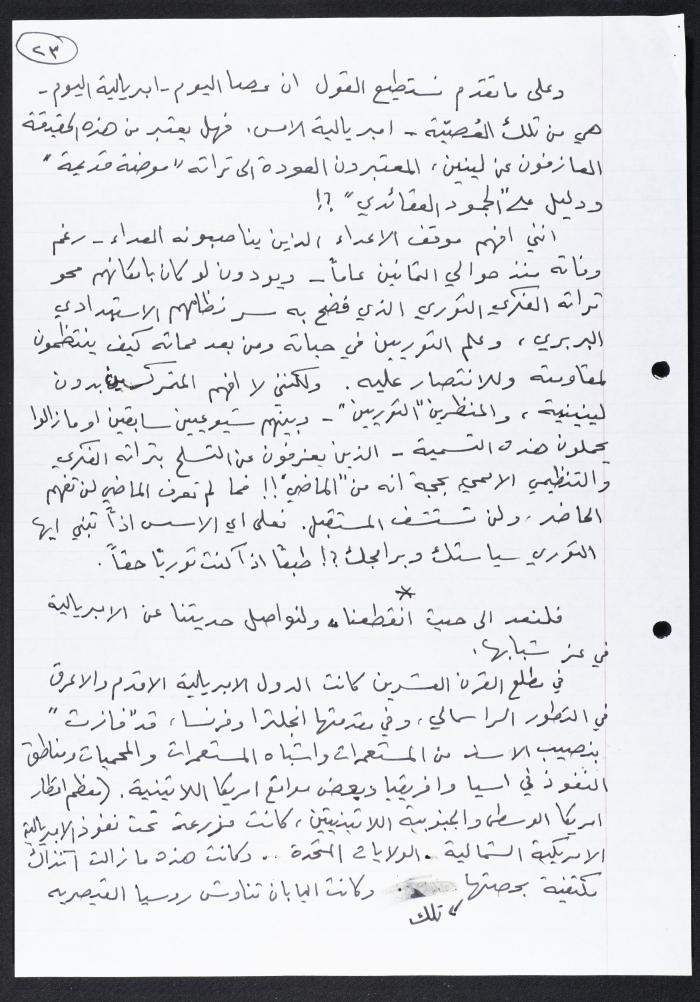 ٢٣
وعلى ما تقدم نستطيع القول ان عصا اليوم - امبريالية اليوم -
هي من تلك العُصيّة - امبريالية الامس. فهل يعتبر من هذه الحقيقة
العازفون عن لينين، المعتبرون العودة الى تراثه "موضة قديمة"
ودليل على "الجمود العقائدي" ؟!
انني افهم موقف الاعداء الذين يناصبونه العداء - رغم
وفاته منذ حوالي الثمانين عاماً - ويودون لو كان بامكانهم محو
تراثه الفكري الثوري الذي فضح به سر نظامهم الاستبدادي
البربري، وعلم الثوريين في حياته ومن بعد مماته كيف ينتظمون
لمقاومته وللانتصار عليه. ولكنني لا افهم المتمركسين بدون
لينينية، والمنظرين "الثوريين" - وبينهم شيوعيين سابقين او ما زالوا
يحملون هذه التسمية - الذين يعزفون عن التسلح بتراثه الفكري
والتنظيمي الاممي بحجة انه من "الماضي"!! فما لم تعرف الماضي لن تفهم
الحاضر، ولن تستشف المستقبل. فعلى اي الاسس اذاً تبني ايها
الثوري سياستك وبرامجك ؟! طبعًا اذا كنت ثوريًا حقاً.
*
فلنعد الى حيث انقطعنا، ولنواصل حديثنا عن الامبريالية
في عز شبابها.
في مطلع القرن العشرين كانت الدول الامبريالية الاقدم والاعرق
في التطور الراسمالي، وفي مقدمتها انجلترا وفرنسا، قد "فازت"
بنصيب الاسد من المستعمرات واشباه المستعمرات والمحميات ومناطق
النفوذ في اسيا وافريقيا وبعض مواقع امريكا اللاتينية. (معظم اقطار
امريكا الوسطى والجنوبية اللاتينيتين، كانت مزرعة تحت نفوذ الامبريالية
الامريكية الشمالية - الولايات المتحدة .. وكانت هذه ما زالت آنذاك
مكتفية بحصتها تلك وكانت اليابان تناوش روسيا القيصرية